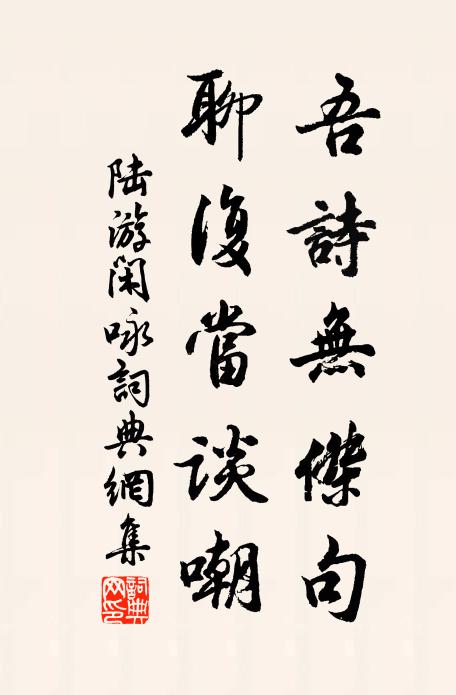 吾詩無傑句
聊復當談嘲
陸游閑咏詞典網集
詞典网印